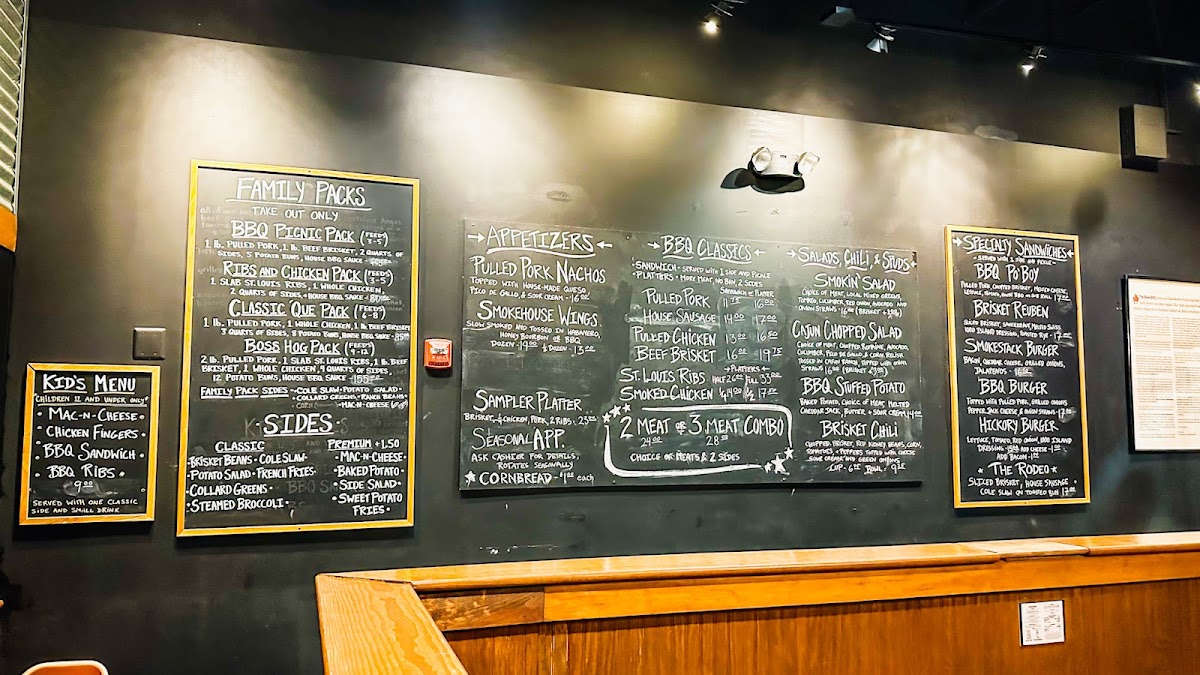 KID'S MENU
"CHILDREN 12 AND UNDER ONLY"
• MAC-N-CHEESE •
• CHICKEN FINGERS •
• BBQ SANDWICH •
• BBQ RIBS •
9.00
SERVED WITH ONE CLASSIC
SIDE AND SMALL DRINK
FAMILY PACKS
TAKE OUT ONLY
BBQ PICNIC PACK (FEEDS 3-5)
1 lb. PULLED PORK, 1 lb. BEEF BRISKET, 2 QUARTS OF
SIDES, 5 POTATO BUNS, HOUSE BBQ SAUCE
RIBS AND CHICKEN PACK (FEEDS 3-5)
1 SLAB ST. LOUIS RIBS, 1 WHOLE CHICKEN
2 QUARTS OF SIDES, HOUSE BBQ SAUCE
CLASSIC QUE PACK (FEEDS 6-8)
1 lb. PULLED PORK, 1 WHOLE CHICKEN, 1 lb. BEEF BRISKET
3 QUARTS OF SIDES, 8 POTATO BUNS, HOUSE BBQ SAUCE
BOSS HOG PACK (FEEDS 9-12)
2 lb. PULLED PORK, 1 SLAB ST. LOUIS RIBS, 1 lb. BEEF
BRISKET, 1 WHOLE CHICKEN, 4 QUARTS OF SIDES,
12 POTATO BUNS, HOUSE BBQ SAUCE 155.00
FAMILY PACK SIDES • COLE SLAW • POTATO SALAD •
• COLLARD GREENS • RANCH BEANS
• MAC-N-CHEESE
• SIDES •
CLASSIC
• BRISKET BEANS • COLE SLAW •
• POTATO SALAD • FRENCH FRIES •
• COLLARD GREENS •
• STEAMED BROCCOLI •
PREMIUM +1.50
• MAC-N-CHEESE •
• BAKED POTATO •
• SIDE SALAD •
• SWEET POTATO
FRIES •
→ APPETIZERS ←
PULLED PORK NACHOS
TOPPED WITH HOUSE-MADE QUESO
PICO DE GALLO, & SOUR CREAM - 16.00
SMOKEHOUSE WINGS
SLOW SMOKED AND TOSSED IN HABANERO,
HONEY BOURBON OR BBQ
DOZEN 19.00 ½ DOZEN - 13.00
SAMPLER PLATTER
BRISKET, CHICKEN, PORK, 2 RIBS - 25.00
SEASONAL APP.
ASK CASHIER FOR DETAILS,
ROTATES SEASONALLY
★ CORNBREAD - 1.00 each
→ BBQ CLASSICS ←
SANDWICH - SERVED WITH 1 SIDE AND PICKLE
• PLATTERS - MORE MEAT, NO BUN, 2 SIDES
SANDWICH or PLATTER
PULLED PORK 11.75 16.00
HOUSE SAUSAGE 14.00 17.00
PULLED CHICKEN 13.00 16.50
BEEF BRISKET 16.00 19.75
→ PLATTERS ←
ST. LOUIS RIBS HALF 26.00 FULL 33.00
SMOKED CHICKEN ½ 17.00
2 MEAT or 3 MEAT COMBO
24.00 28.50
CHOICE OF MEATS & 2 SIDES
→ SALADS, CHILI, & SPUDS ←
SMOKIN' SALAD
CHOICE OF MEAT, LOCAL MIXED GREENS,
TOMATO, CUCUMBER, RED ONION, AVOCADO, AND
ONION STRAWS - 16.00
CAJUN CHOPPED SALAD
CHOICE OF MEAT, CHOPPED ROMAINE, AVOCADO,
CUCUMBER, PICO DE GALLO & CORN RELISH
TOSSED IN CAJUN RANCH, TOPPED WITH ONION
STRAWS 16.00
BBQ STUFFED POTATO
BAKED POTATO, CHOICE OF MEAT, MELTED
CHEDDAR JACK, BUTTER, & SOUR CREAM 14.00
BRISKET CHILI
CHOPPED BRISKET, RED KIDNEY BEANS, CORN,
TOMATOES, & PEPPERS TOPPED WITH CHEESE
SOUR CREAM AND GREEN ONIONS
CUP - 6.75 BOWL - 9.75
→ SPECIALTY SANDWICHES ←
- SERVED WITH 1 SIDE AND PICKLE -
BBQ PO'BOY
PULLED PORK, CHOPPED BRISKET,
17.00
BRISKET REUBEN
SLICED BRISKET, SAUERKRAUT, MELTED SWISS
1000 ISLAND DRESSING, TOASTED RYE - 17.00
SMOKESTACK BURGER
BACON, CHEDDAR CHEESE, GRILLED ONIONS,
JALAPENOS - 16.00
BBQ BURGER
TOPPED WITH PULLED PORK, GRILLED ONIONS
PEPPER JACK CHEESE, & ONION STRAWS 17.00
HICKORY BURGER
LETTUCE, TOMATO, RED ONION, 1000 ISLAND
DRESSING - 15.00 ADD CHEESE - 1.00
ADD BACON - 1.00
★ THE RODEO ★
SLICED BRISKET, HOUSE SAUSAGE
COLE SLAW ON TOASTED BUN 17.00